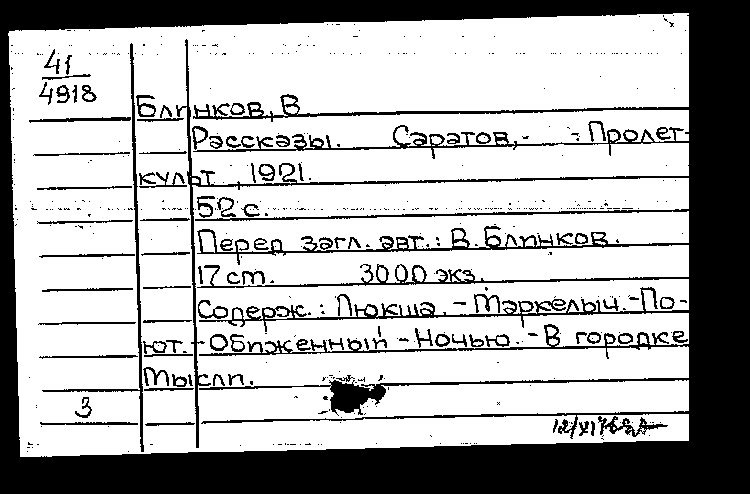 41
4918
Блинков, В.
Рассказы. Саратов, - : Пролет-
культ, 1921.
52 с.
Перед загл. авт.: В. Блинков.
17 cm. 3000 экз.
Содерж.: Люкша. - Маркелыч. - По-
ют. - Обиженный - Ночью. - В городке
Мысли.
3
12/XI76